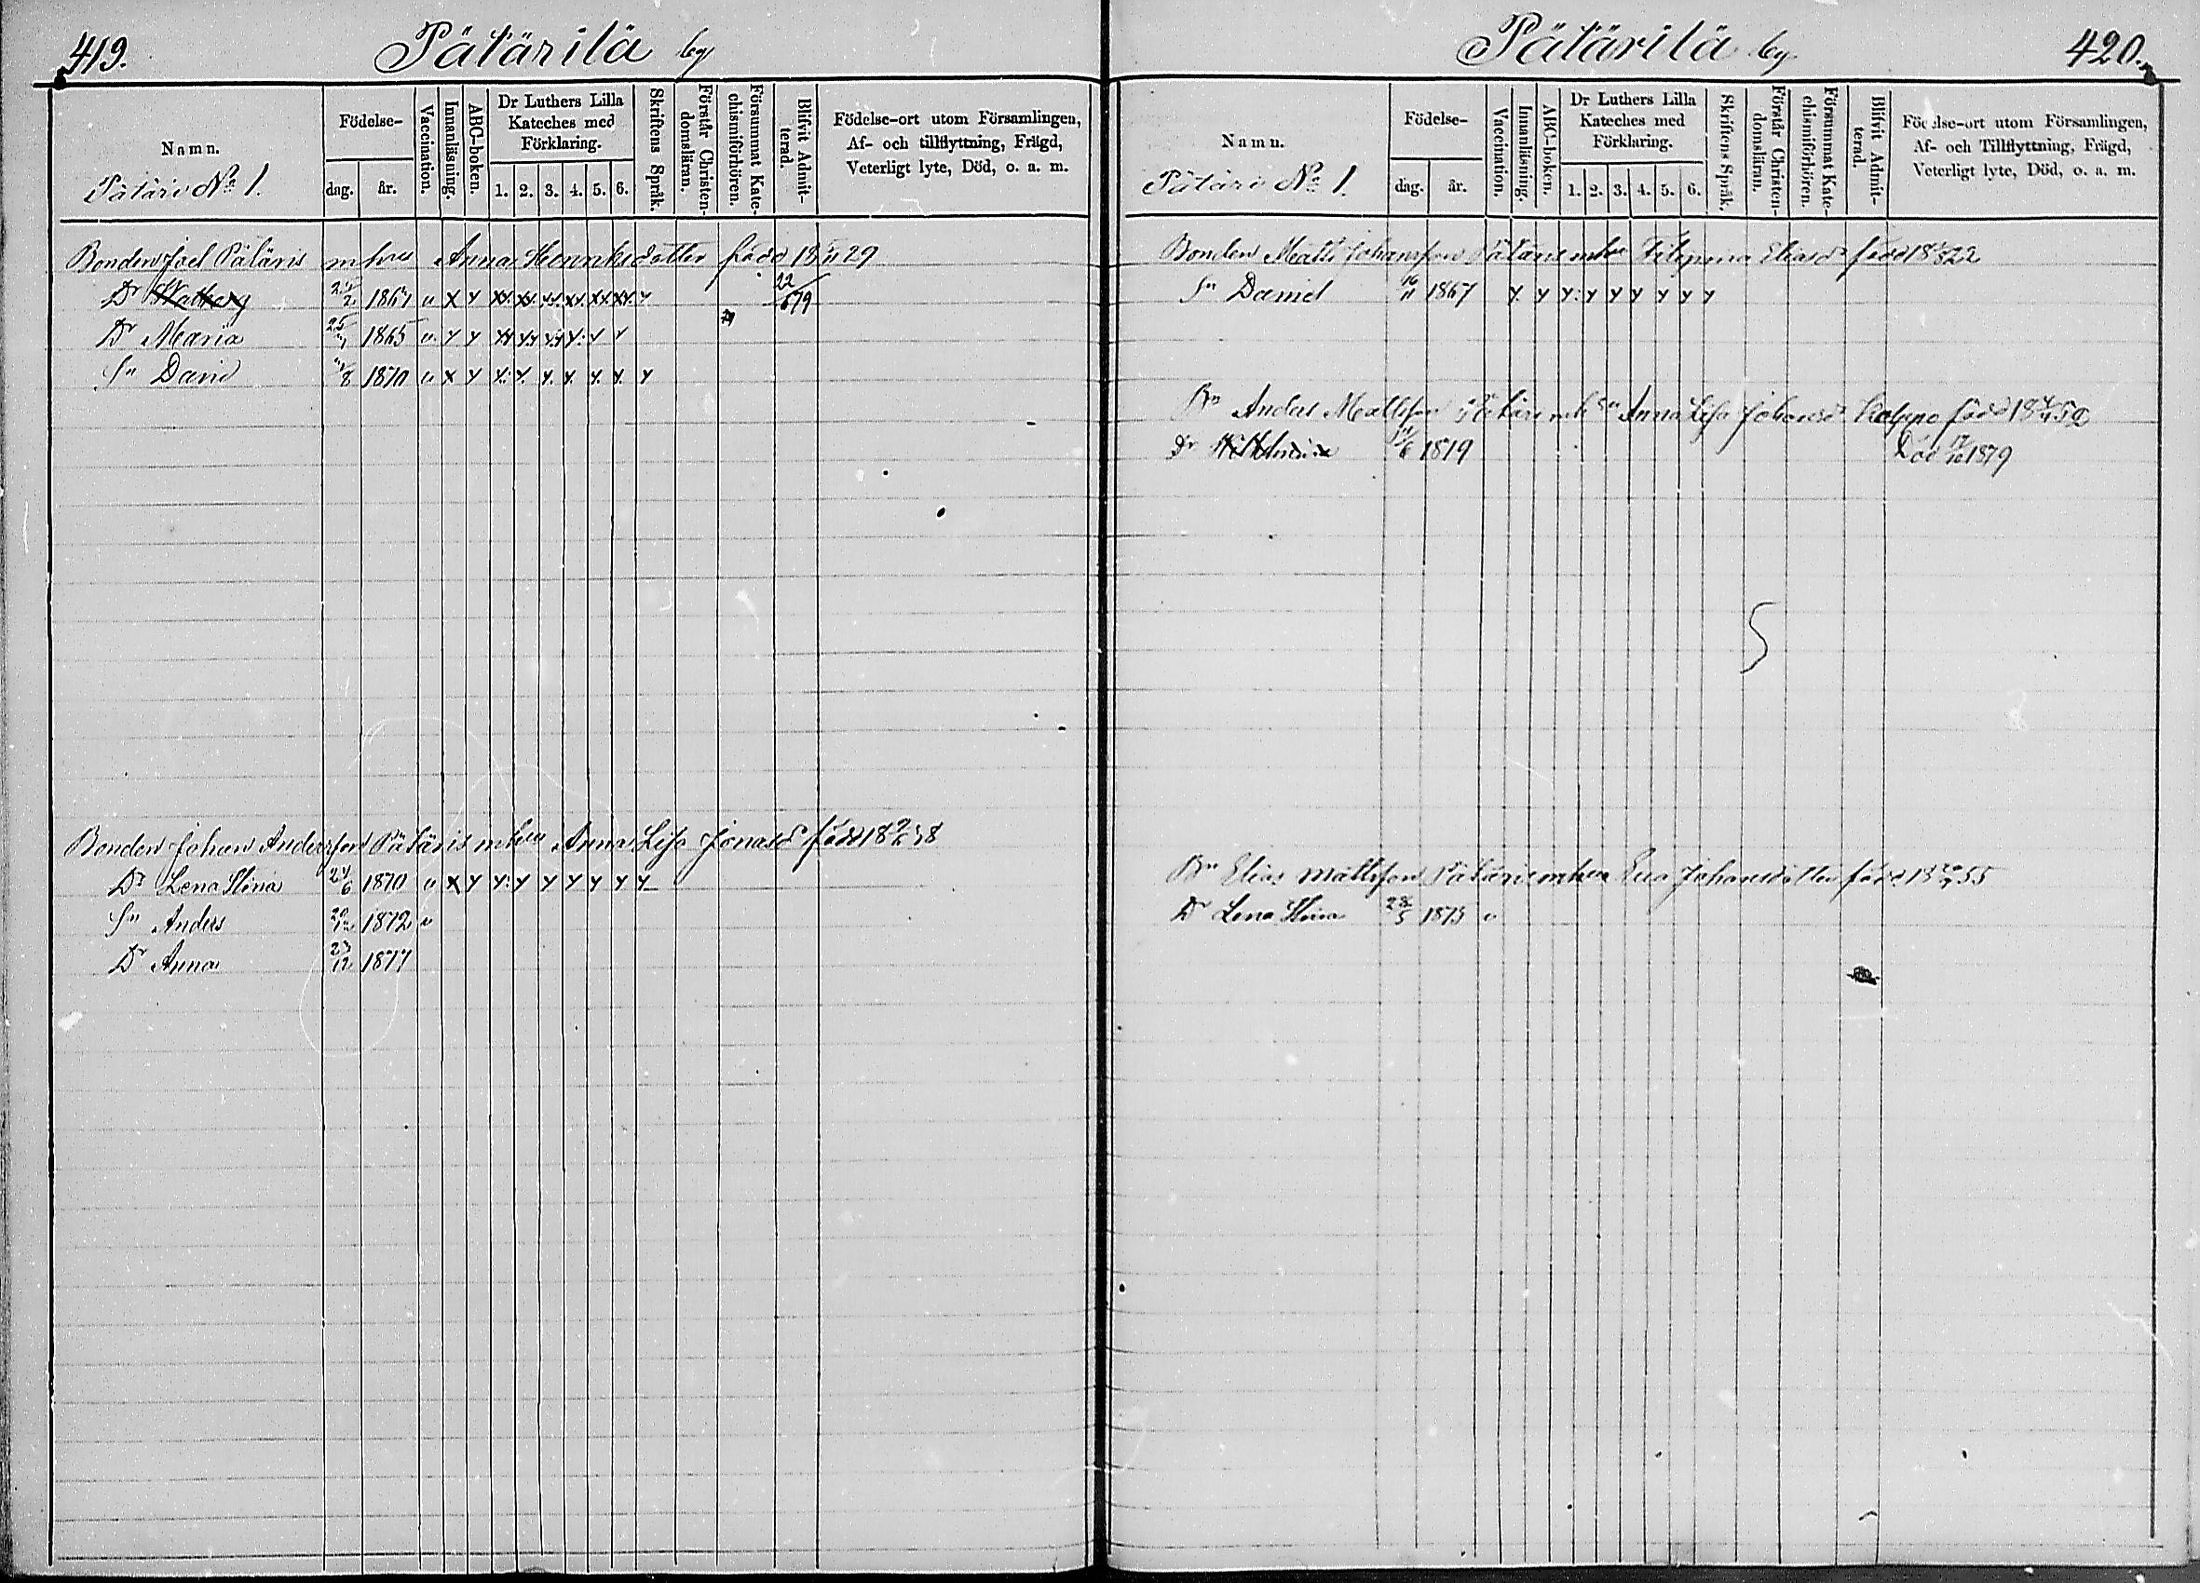 419.
Pätärilä by
Namn.
Pätäri No 1.
Födelse-
dag.
år.
Vaccination.
Innanläsning.
ABC-boken.
Dr Luthers Lilla
Kateches med
Förklaring.
1. 2. 3. 4. 5. 6.
Skriftens Språk.
Förstår Christen-
domsläran.
Försummat Kate-
chismiförhören.
Blifvit Admit-
terad.
Födelse-ort utom Församlingen,
Af- och tillflyttning, Frägd,
Veterligt lyte, Död, o. a. m.
Bonden Joel Pätäris m hus Anna Henriksdotter född 18 29
Dr 1864 v x y 22/6 79
Dr Maria 1865 v y y
Sn David 1870 v x y
Bonden Johan Andersson Pätäris m hus Anna Lisa Jonasdr född 18 38
Dr Lena Stina 24/6 1870 v x y y y y y y y y
Sn Anders 1872 v
Dr Anna 23/12 1877
Pätärilä by
420.
Namn.
Pätäri No 1.
Födelse-
dag.
år.
Vaccination.
Innanläsning.
ABC-boken.
Dr Luthers Lilla
Kateches med
Förklaring.
1. 2. 3. 4. 5. 6.
Skriftens Språk.
Förstår Christen-
domsläran.
Försummat Kate-
chismiförhören.
Blifvit Admit-
terad.
Födelse-ort utom Församlingen,
Af- och Tillflyttning, Frägd,
Veterligt lyte, Död, o. a. m.
Bonden Matts Johansson Pätäri m hu Eliasdr född 18 22
Sn Daniel 1867 y y y y y y y y y
Bn Anders Mattsson Pätäri Anna Lisa Johansdr född 18 52
Dr 1879 Död 1879
Bn Elias Mattsson Pätäri m hus Eva Johansdotter född 18 55
Dr Lena Stina 28/5 1875 v